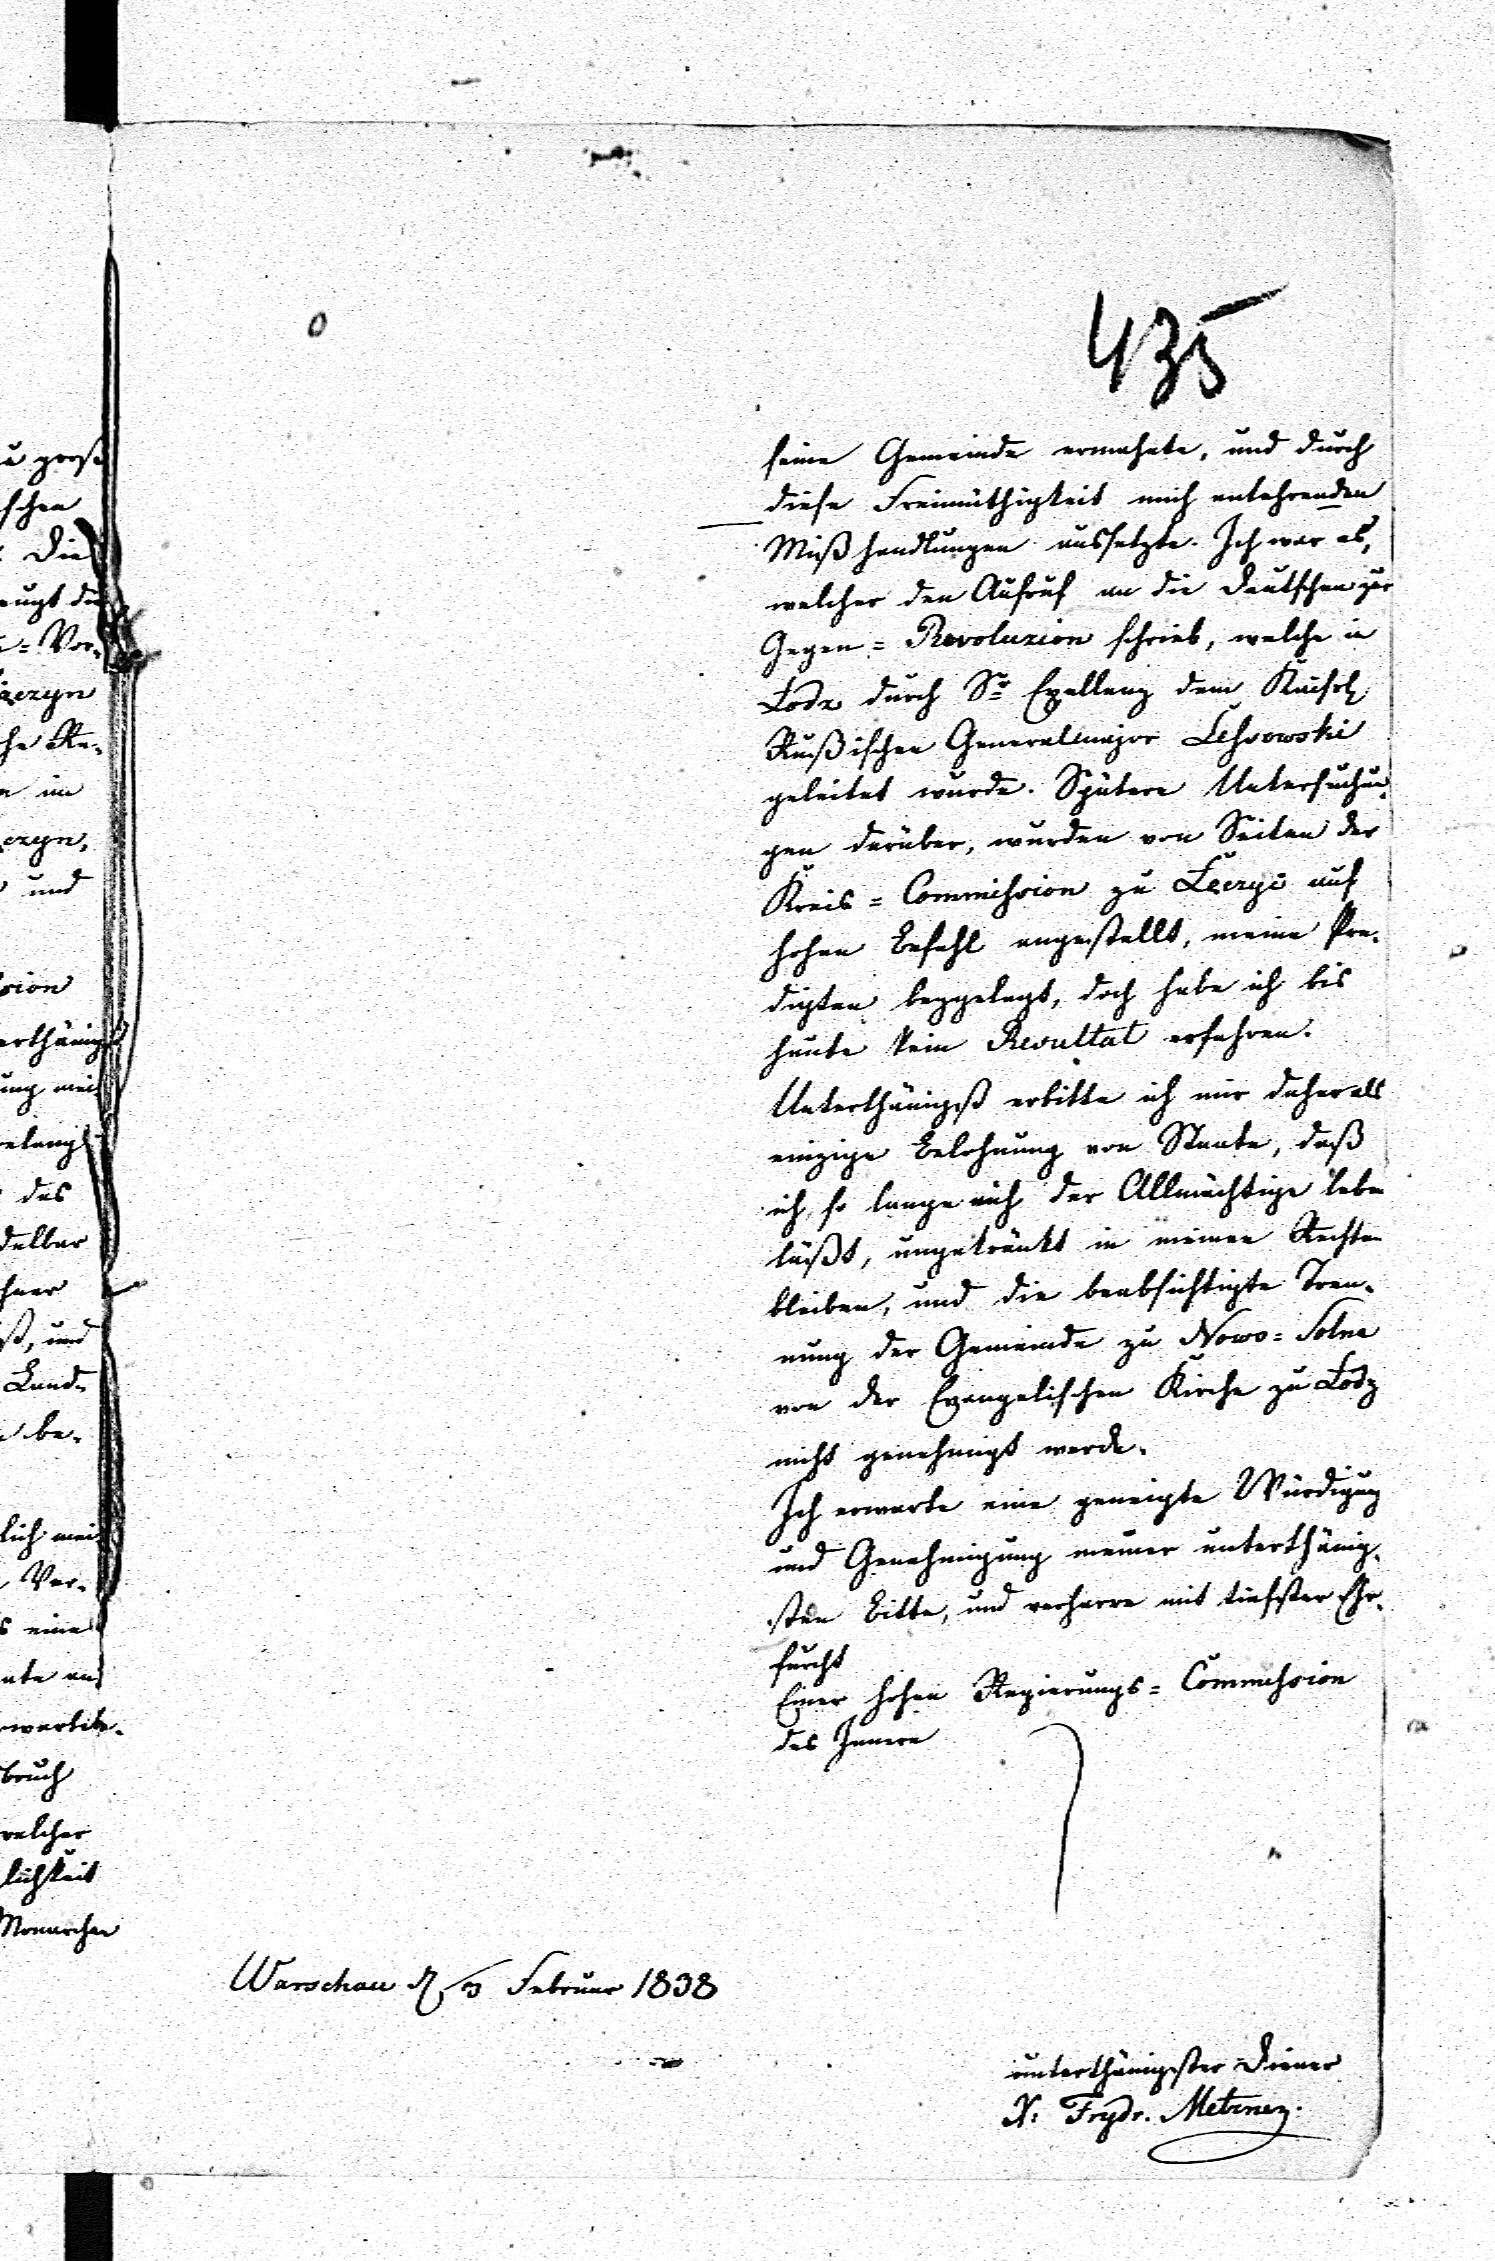 435
seine Gemeinde ermahnte, und durch
diese Freimüthigkeit mich entehrenden
Mißhandlungen aussetzte. Ich war es,
welcher den Aufruf an die Deutschen zur
Gegen=Revoluzion schrieb, welche in
Łodz durch Sr Exellenz dem Kaiserl
Rußischen Generalmajor
geleitet wurde. Spätere Untersuchun-
gen darüber, wurden von Seiten der
Kreis=Commission zu Łęczyc auf
hohen Befehl angestellt, meine Pre-
digten beygelegt, doch habe ich bis
heute kein Resultat erfahren.
Unterthänigst erbitte ich mir daher als
einzige Belohnung von Staate, daß
ich, so lange mich der Allmächtige leben
läßt, ungekränkt in meinen Rechten
bleiben, und die beabsichtigte Tren-
nung der Gemeinde zu Nowo=Solna
von der Evangelischen Kirche zu Łodz
nicht genehmigt werde.
Ich erwarte eine geneigte Würdigung
und Genehmigung meiner unterthänig-
sten Bitte, und verharre mit tiefster Ehr-
furcht
Einer hohen Regierungs=Commission
des Innern
Warschau Februar 1838
unterthänigster Diener
X: Frydr. Metzner.
u groß
schen
Die
eugt die
=Vor-
che Re-
n im
und
sion
erthänig
ung mei-
des
delbar
ß, und
Land-
be-
lich mei-
Ver-
s eine
bruch
welcher
lichkeit
Monarchen